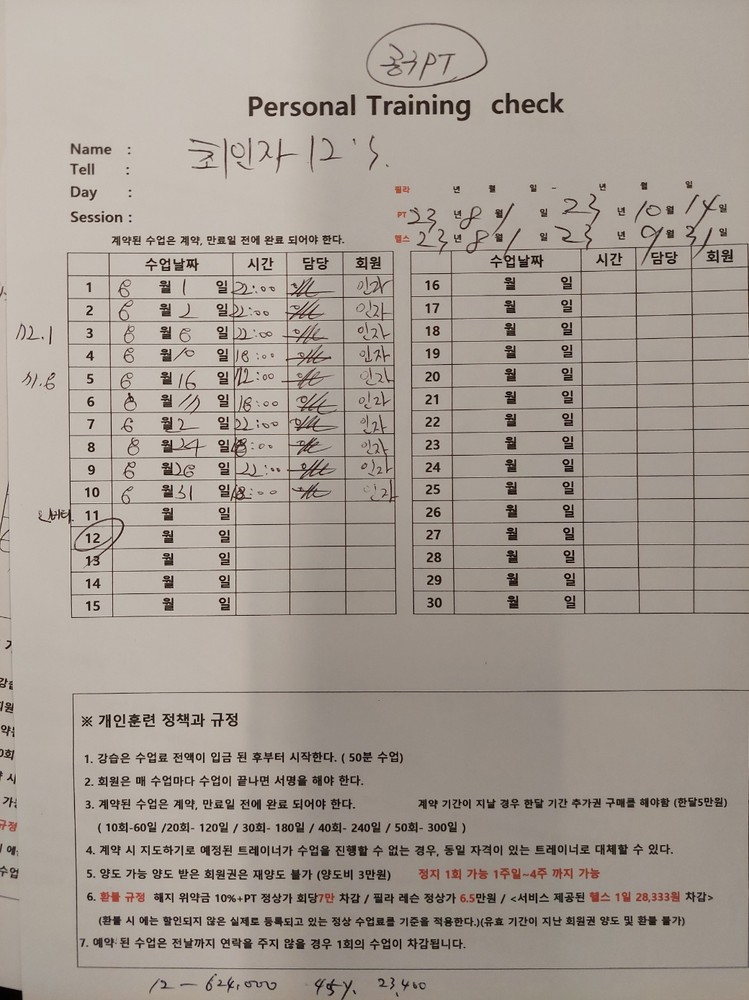 공구PT
Personal Training check
Name :
최인자 12's.
Tell :
Day :
Session :
필라 년 월 일 - 년 월 일
PT 23 년 8 월 1 일 23 년 10 월 14 일
헬스 23 년 8 월 1 일 23 년 9 월 31 일
계약된 수업은 계약, 만료일 전에 완료 되어야 한다.
수업날짜 시간 담당 회원
1 8 월 1 일 22:00 인자
2 8 월 2 일 22:00 인자
3 8 월 8 일 22:00 인자
4 8 월 10 일 18:00 인자
5 8 월 16 일 22:00 인자
6 8 월 17 일 18:00 인자
7 8 월 일 22:00 인자
8 8 월 24 일 18:00 인자
9 8 월 일 22:00 인자
10 8 월 31 일 18:00 인자
11 월 일
12 월 일
13 월 일
14 월 일
15 월 일
72.1
71.6
수업날짜 시간 담당 회원
16 월 일
17 월 일
18 월 일
19 월 일
20 월 일
21 월 일
22 월 일
23 월 일
24 월 일
25 월 일
26 월 일
27 월 일
28 월 일
29 월 일
30 월 일
※ 개인훈련 정책과 규정
1. 강습은 수업료 전액이 입금 된 후부터 시작한다. ( 50분 수업)
2. 회원은 매 수업마다 수업이 끝나면 서명을 해야 한다.
3. 계약된 수업은 계약, 만료일 전에 완료 되어야 한다. 계약 기간이 지날 경우 한달 기간 추가권 구매를 해야함 (한달5만원)
( 10회-60일 /20회- 120일 / 30회- 180일 / 40회- 240일 / 50회- 300일 )
4. 계약 시 지도하기로 예정된 트레이너가 수업을 진행할 수 없는 경우, 동일 자격이 있는 트레이너로 대체할 수 있다.
5. 양도 가능 양도 받은 회원권은 재양도 불가 (양도비 3만원) 정지 1회 가능 1주일~4주 까지 가능
6. 환불 규정 해지 위약금 10%+PT 정상가 회당7만 차감 / 필라 레슨 정상가 6.5만원 / <서비스 제공된 헬스 1일 28,333원 차감>
(환불 시 에는 할인되지 않은 실제로 등록되고 있는 정상 수업료를 기준을 적용한다.)(유효 기간이 지난 회원권 양도 및 환불 불가)
7. 예약 된 수업은 전날까지 연락을 주지 않을 경우 1회의 수업이 차감됩니다.
12 - 624,000 45%. 23,400